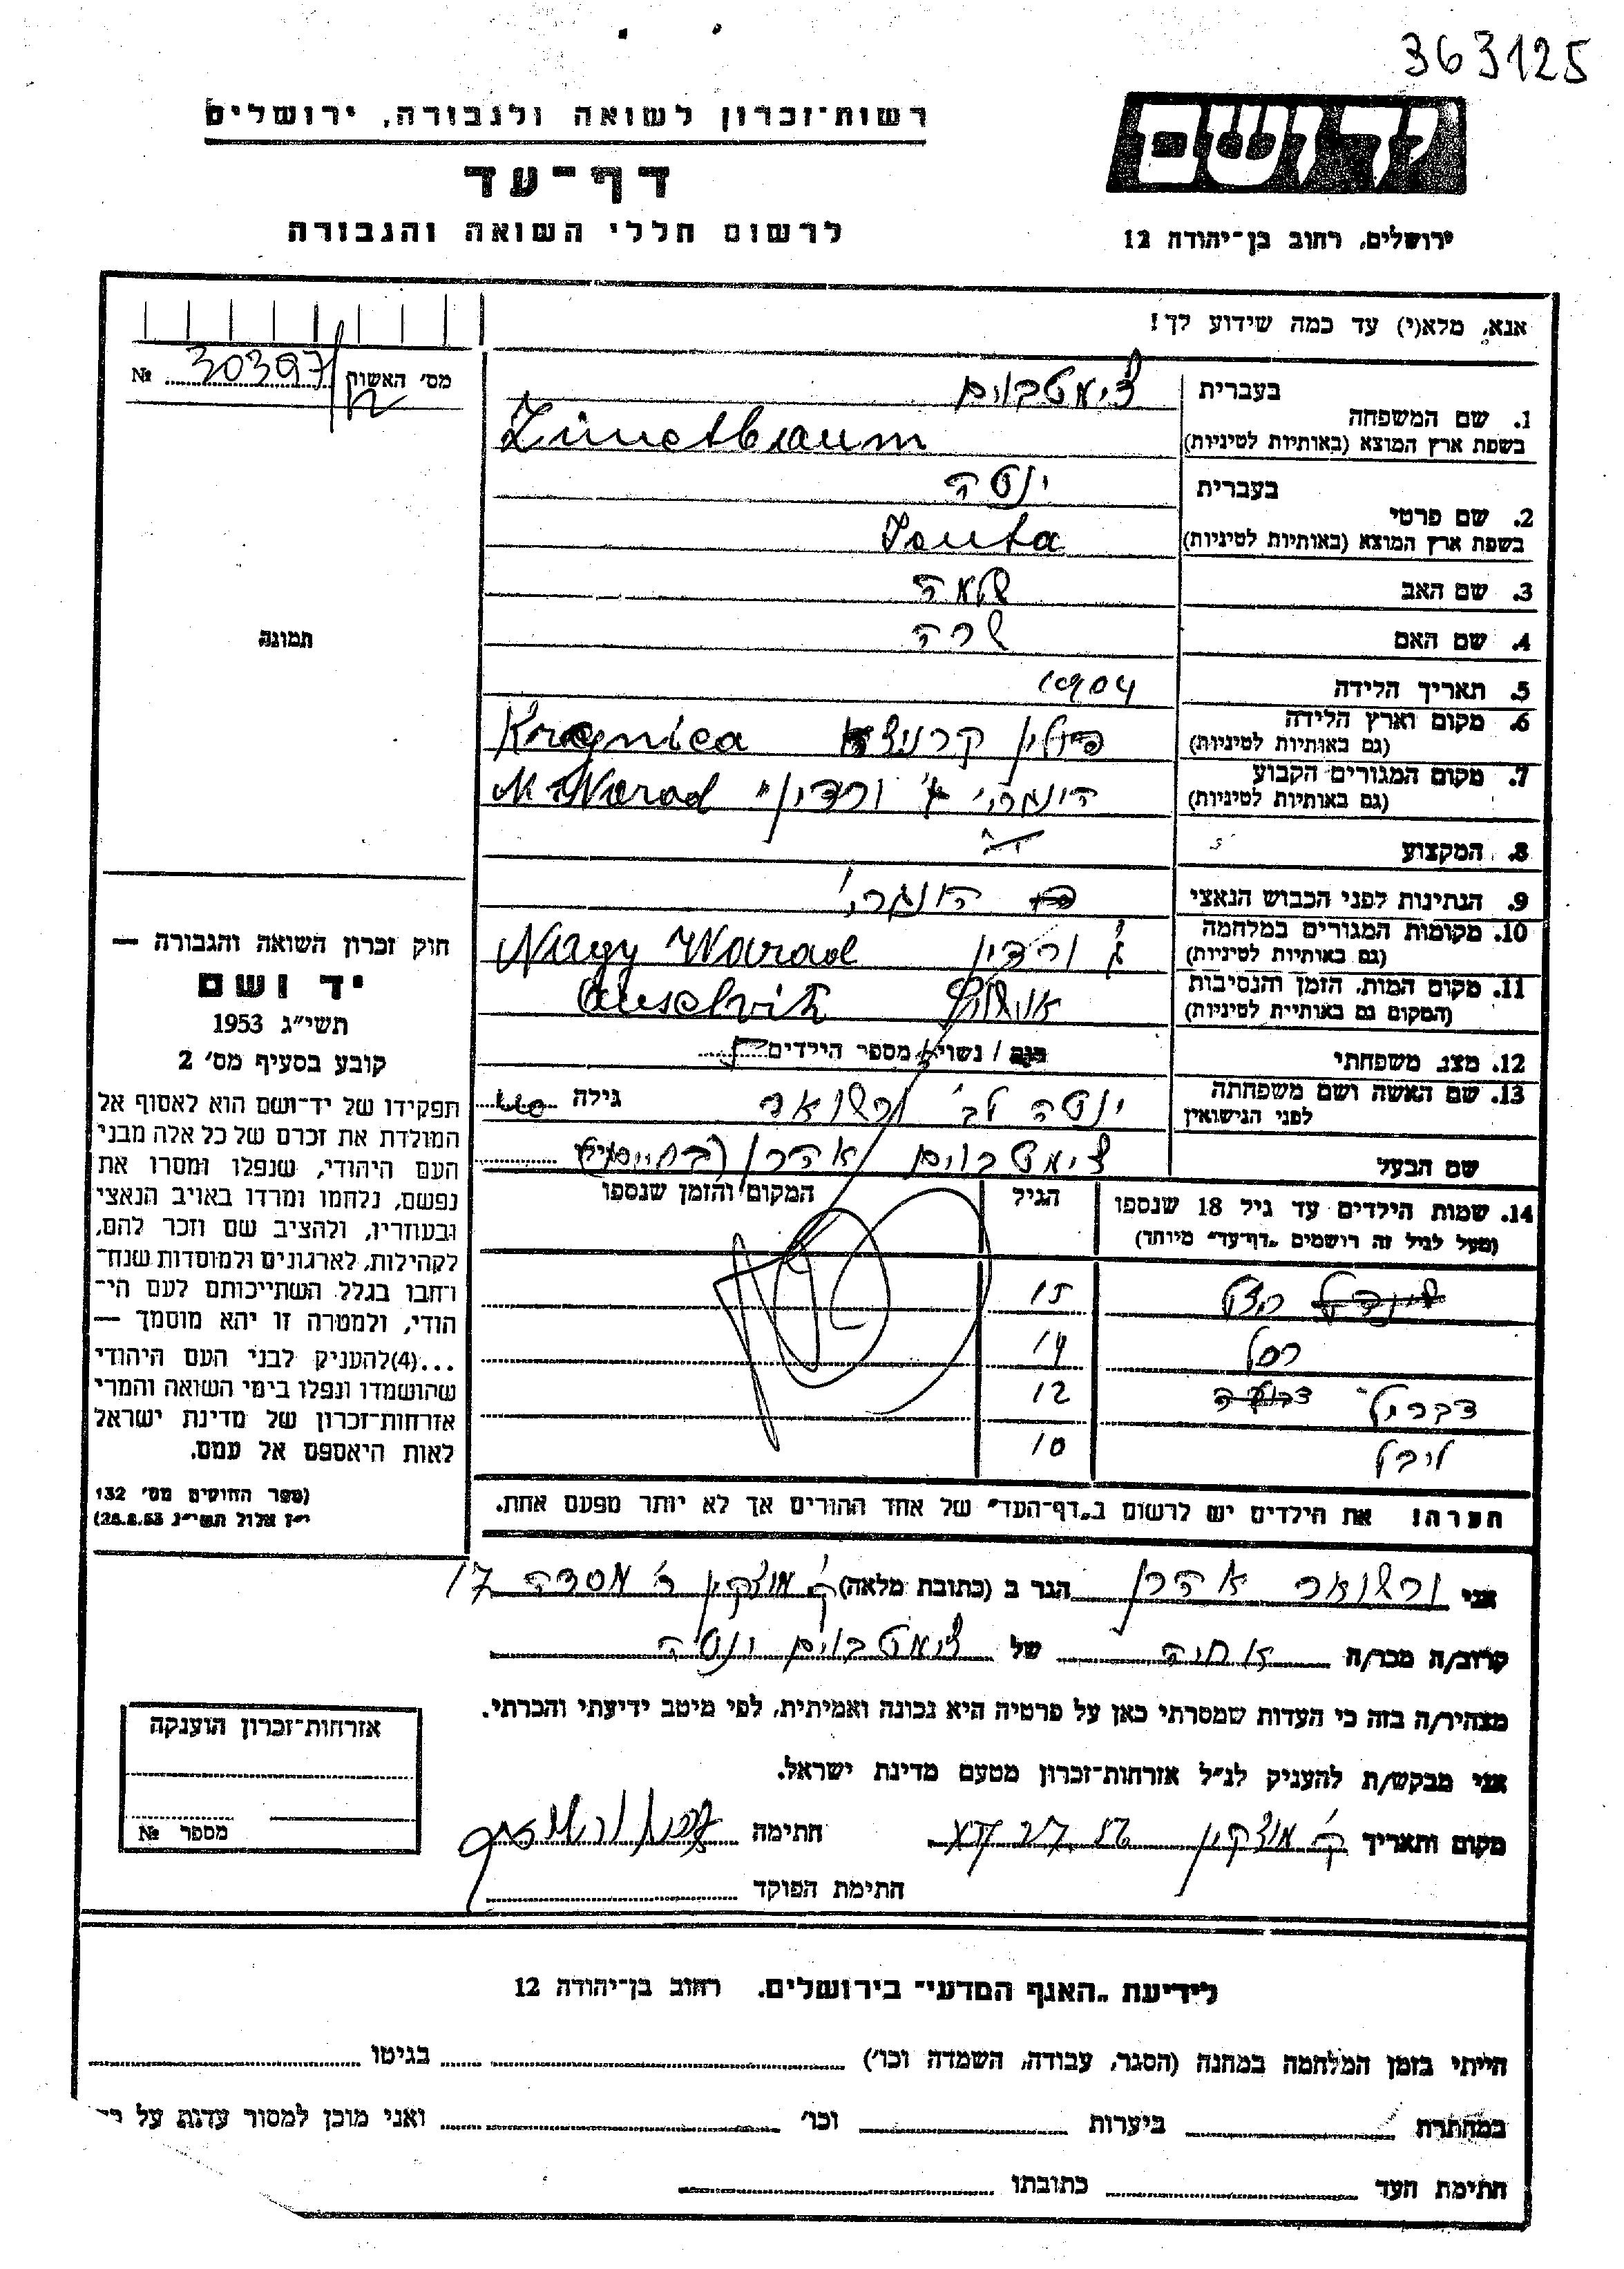 363125
רשות־זכרון לשואה ולגבורה, ירושלים
יד ושם
דף־עד
לרשום חללי השואה והגבורה
ירושלים, רחוב בן־יהודה 12
אנא, מלא(י) עד כמה שידוע לך!
מס׳ האשות 30397 №
1. שם המשפחה
בעברית צימטבוים
בשפת ארץ המוצא (באותיות לטיניות) Zimetbraum
2. שם פרטי
בעברית ינטה
בשפת ארץ המוצא (באותיות לטיניות) Jenta
3. שם האב
4. שם האם שרה
5. תאריך הלידה 1904
6. מקום וארץ הלידה
(גם באותיות לטיניות) פולין קרניצא Krognica
7. מקום המגורים הקבוע
(גם באותיות לטיניות)
8. המקצוע
9. הנתינות לפני הכבוש הנאצי
10. מקומות המגורים במלחמה
(גם באותיות לטיניות) ג׳ ורדין Nagy Warad
11. מקום המות, הזמן והנסיבות
(המקום גם באותיית לטיניות) Auschvitz
12. מצב משפחתי רוק / נשוי / מספר הילדים 5
13. שם האשה ושם משפחתה
לפני הנישואין ינטה לב׳ ורשואר גילה 40
שם הבעל צימטבוים אהרן
14. שמות הילדים עד גיל 18 שנספו
(מעל לגיל זה רושמים „דף־עד״ מיוחד)
הגיל
המקום והזמן שנספו
הצל 15
רסל 14
דבריל 12
ליבל 10
הערה! את הילדים יש לרשום ב„דף־העד״ של אחד ההורים אך לא יותר מפעם אחת.
תמונה
חוק זכרון השואה והגבורה —
יד ושם
תשי״ג 1953
קובע בסעיף מס׳ 2
תפקידו של יד־ושם הוא לאסוף אל
המולדת את זכרם של כל אלה מבני
העם היהודי, שנפלו ומסרו את
נפשם, נלחמו ומרדו באויב הנאצי
ובעוזריו, ולהציב שם וזכר להם,
לקהילות, לארגונים ולמוסדות שנח־
רחבו בגלל השתייכותם לעם הי־
הודי, ולמטרה זו יהא מוסמך —
...(4)להעניק לבני העם היהודי
שהושמדו ונפלו בימי השואה והמרי
אזרחות־זכרון של מדינת ישראל
לאות היאספם אל עמם.
(ספר החוקים מס׳ 132
י״ז אלול תשי״ג 28.8.53)
אני ורשואר אהרן הגר ב (כתובת מלאה) ק׳ מוצקין ר׳ מסדה 17
קרוב/ה מכר/ה אחיה של צימטבוים ינטה
מצהיר/ה בזה כי העדות שמסרתי כאן על פרטיה היא נכונה ואמיתית, לפי מיטב ידיעתי והכרתי.
אני מבקש/ת להעניק לנ״ל אזרחות־זכרון מטעם מדינת ישראל.
מקום ותאריך ק׳ מוצקין חתימה
חתימת הפוקד
אזרחות־זכרון הוענקה
מספר №
לידיעת „האגף המדעי״ בירושלים. רחוב בן־יהודה 12
הייתי בזמן המלחמה במחנה (הסגר, עבודה, השמדה וכו׳) בגיטו
במחתרת ביערות וכו׳ ואני מוכן למסור עדות על
חתימת העד כתובתו